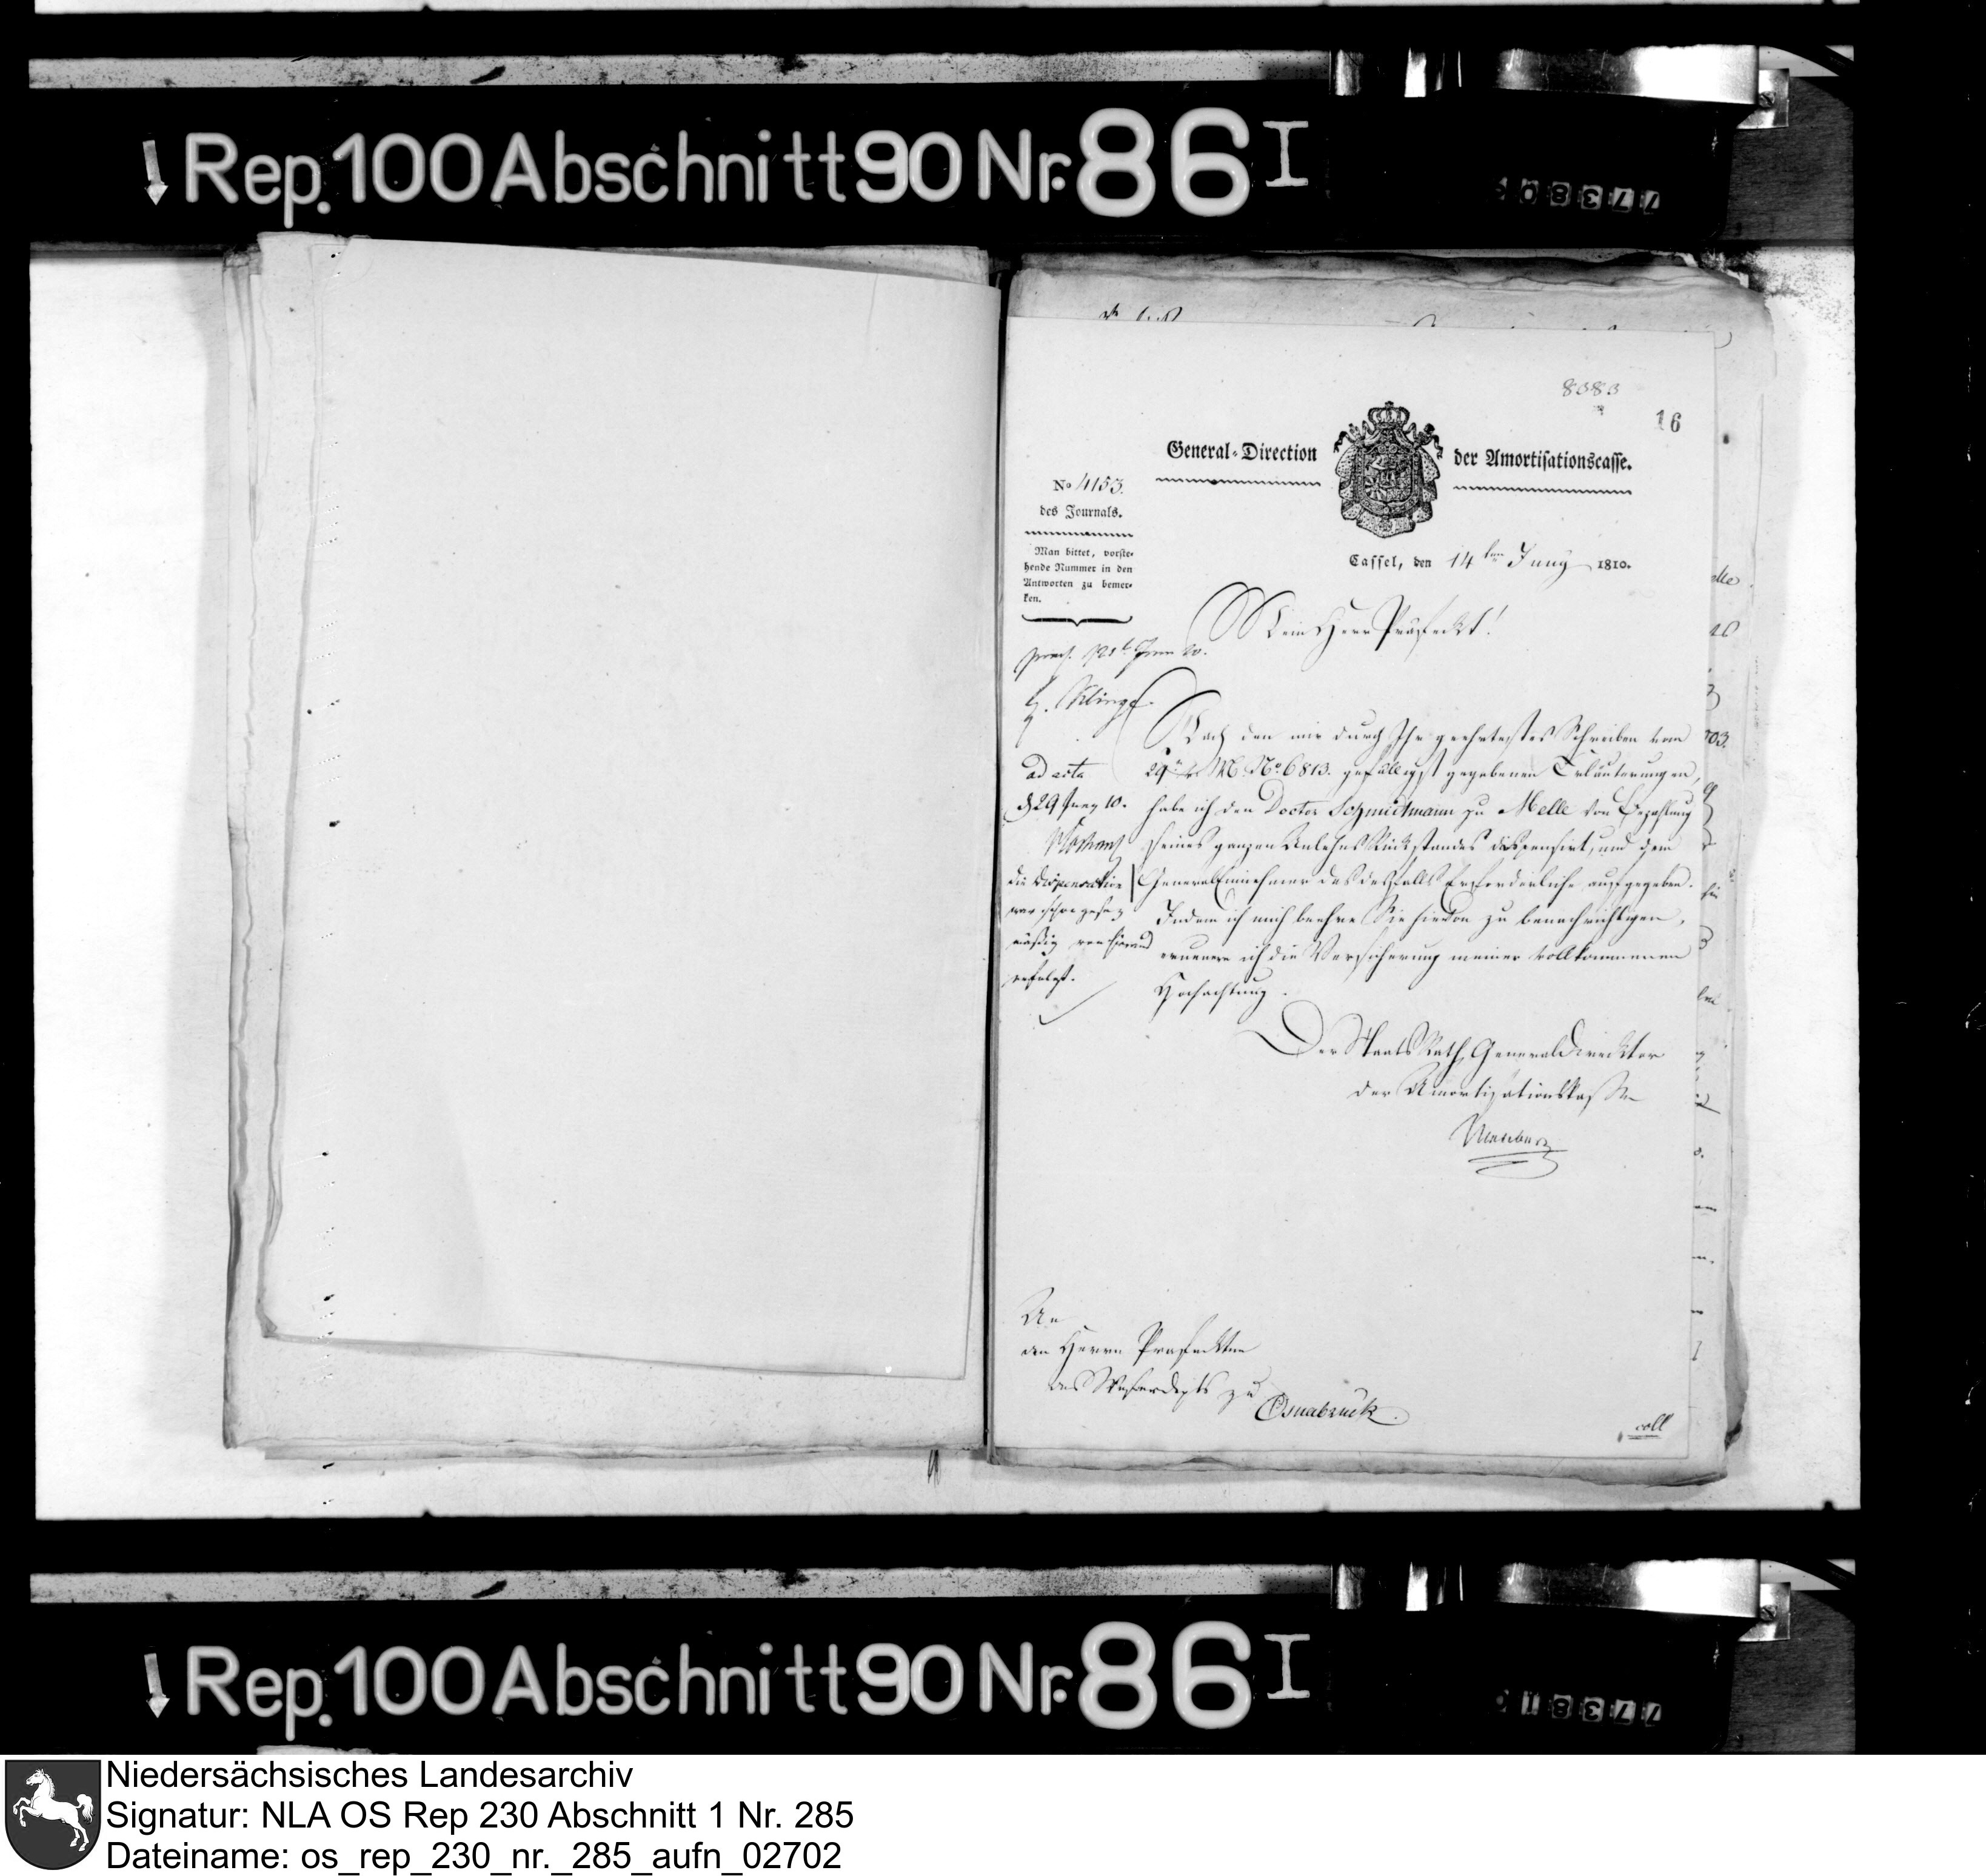 Rep. 100 Abschnitt 90 Nr. 86 I
77380
8383
16
General-Direction der Amortisationscasse.
No 4153.
des Journals.
Man bittet, vorste-
hende Nummer in den
Antworten zu bemer-
ken.
Cassel, den 14ten Juny 1810.
Mein Herr Präfeckt!
praes. Juni 10.
H. Klinge
ad acta
d 29 Juny 10.
die Dispensation
war schon
mäßig von hieraus
erfolgt.
Nach den mir durch Ihr geehrtestes Schreiben vom
29n v. M. No. 6813. gefälligst gegebenen Erläuterungen,
habe ich den Doctor Schmidtmann zu Melle von Bezahlung
seines ganzen Anlehns Rückstandes dispensirt, und dem
General Einnehmer das desfalls Erforderliche aufgegeben.
Indem ich mich beehre Sie hievon zu benachrichtigen,
erneuere ich die Versicherung meiner vollkommenen
Hochachtung.
Der Staats Rath, General Direcktor
der Amortizationskasse
An
den Herrn Praefeckten
des Weserdepts zu
Osnabrück.
coll
Rep. 100 Abschnitt 90 Nr. 86 I
77381
Niedersächsisches Landesarchiv
Signatur: NLA OS Rep 230 Abschnitt 1 Nr. 285
Dateiname: os_rep_230_nr._285_aufn_02702